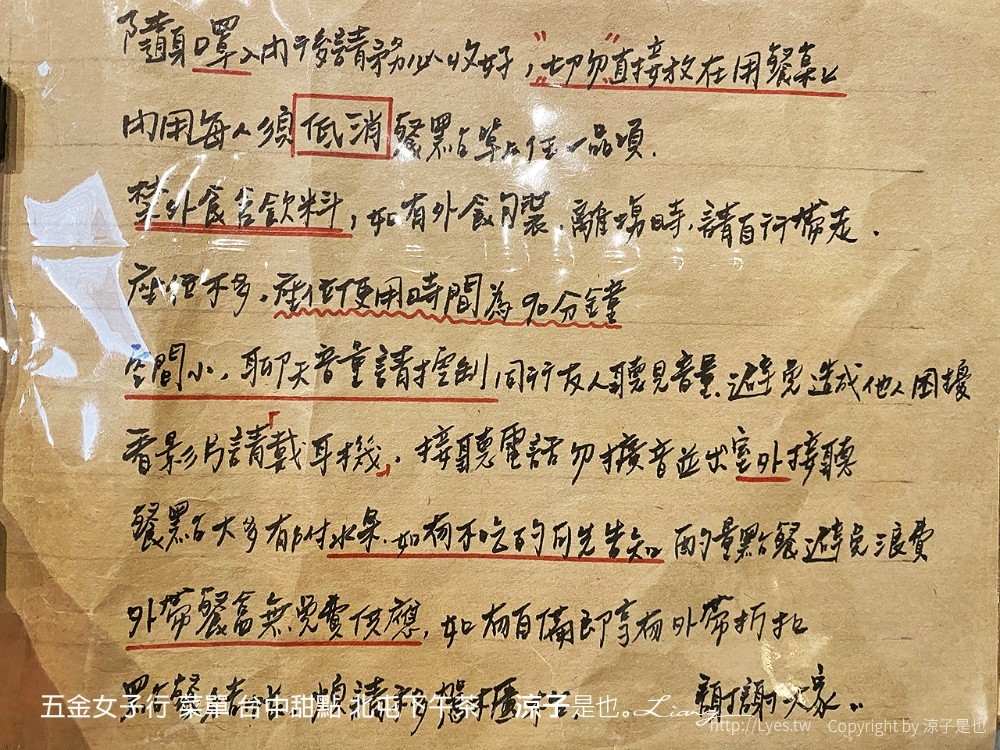 口罩入內後請務必收好，"切勿"直接放在用餐桌上
內用每人須低消餐點菜上任一品項.
禁外食含飲料，如有外食包裝.離場時.請自行帶走.
座位不多.座位使用時間為90分鐘
空間小.聊天音量請控制同行友人聽見音量.避免造成他人困擾
看影片請「戴耳機」.接聽電話勿擴音並出室外接聽
餐點大多有附水果.如有不吃的可先告知 酌量點餐避免浪費
外帶餐盒無免費供應，如有自備即享有外帶折扣
點餐請 謝謝大家..
五金女子行 菜單 台中甜點 北屯下午茶 涼子是也。Liang
http://Lyes.tw Copyright by 涼子是也